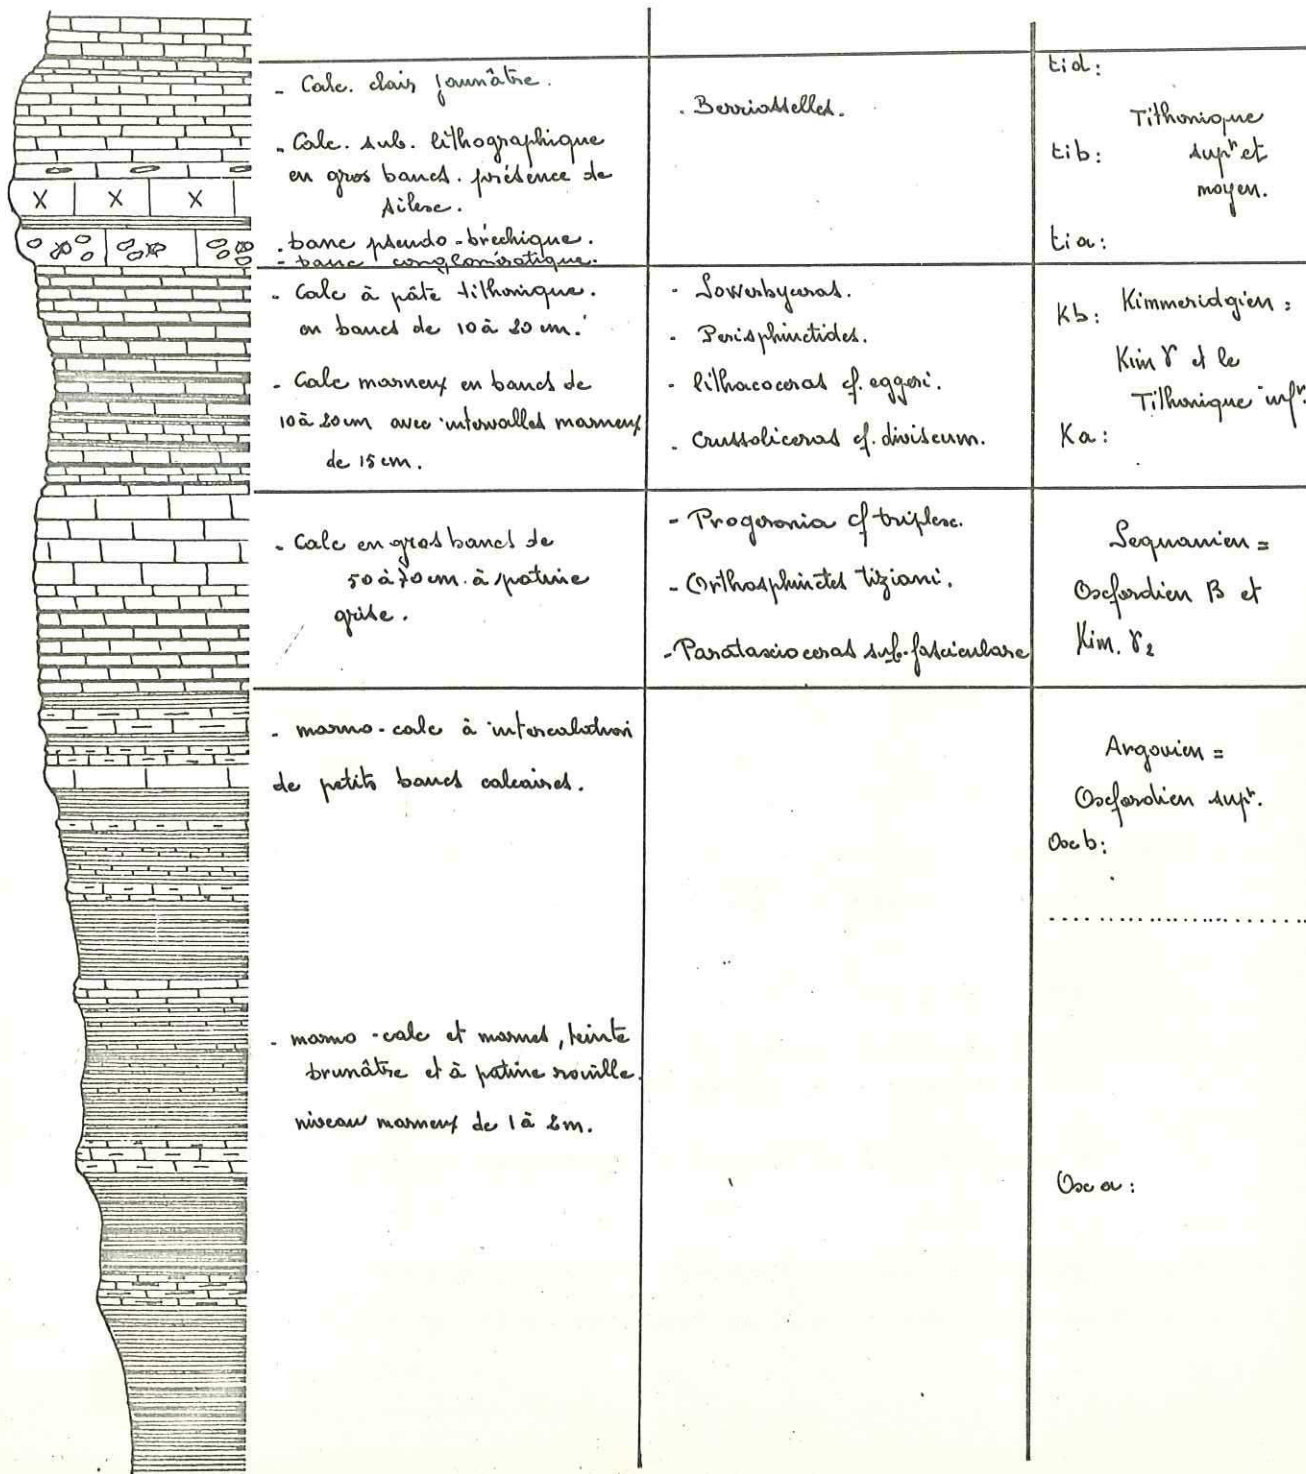 - Calc. clair jaunâtre.
- Calc. sub. lithographique
en gros bancs. présence de
silex.
- banc pseudo-bréchique.
- banc conglomératique.
- Berriasselles.
tid:
Tithonique
tib: supr et
moyen.
tia:
- Calc à pâte tithonique.
en bancs de 10 à 20 cm.
- Calc marneux en bancs de
10 à 20 cm avec intervalles marneux
de 15 cm.
- Sowerbyceras.
- Perisphinctides.
- lithacoceras cf. eggeri.
- Crussoliceras cf. divisum.
Kb: Kimmeridgien =
Kim γ et le
Tithonique infr.
Ka:
- Calc en gros bancs de
50 à 70 cm. à patine
grise.
- Progeronia cf triplex.
- Orthosphinctes tiziani.
- Parataxioceras sub-fasciculare
Sequanien =
Oxfordien B et
Kim. γ2
- marno-calc à intercalation
de petits bancs calcaires.
Argovien =
Oxfordien supr.
Oxb:
- marno-calc et marnes, teinte
brunâtre et à patine rouille.
niveau marneux de 1 à 2m.
Oxa: